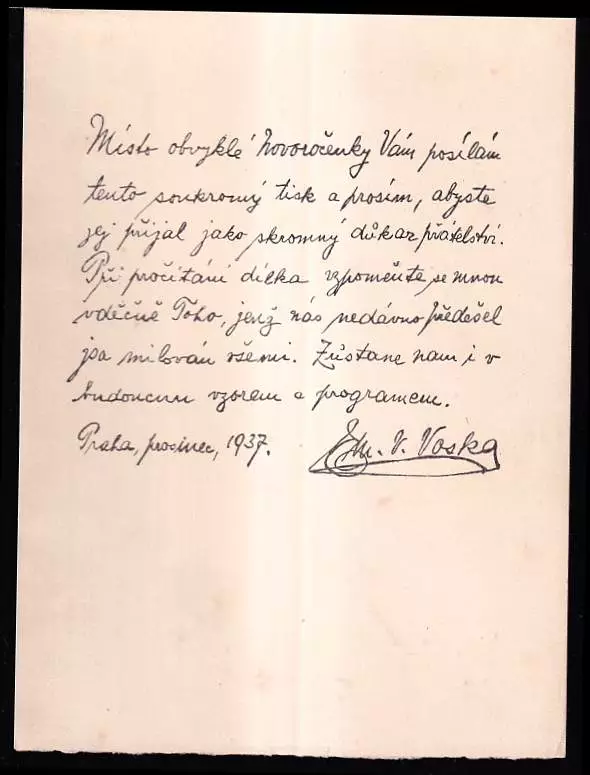 Místo obvyklé Novoročenky Vám posílám
tento soukromý tisk a prosím, abyste
jej přijal jako skromný důkaz přátelství.
Při pročítání dílka vzpomeňte se mnou
vděčně Toho, jenž nás nedávno předešel
jsa milován všemi. Zůstane nám i v
budoucnu vzorem a programem.
Praha, prosinec, 1937. Em. V. Voska